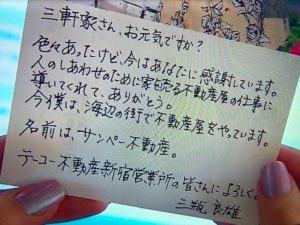 三軒家さん、お元気ですか?
色々あったけど、今はあなたに感謝しています。
人のしあわせのために家を売る不動産屋の仕事に
導いてくれて、ありがとう。
今僕は、海辺の街で不動産屋をやっています。
名前は、サンペー不動産。
テーコー不動産新宿営業所の皆さんによろしく。
三瓶 良雄